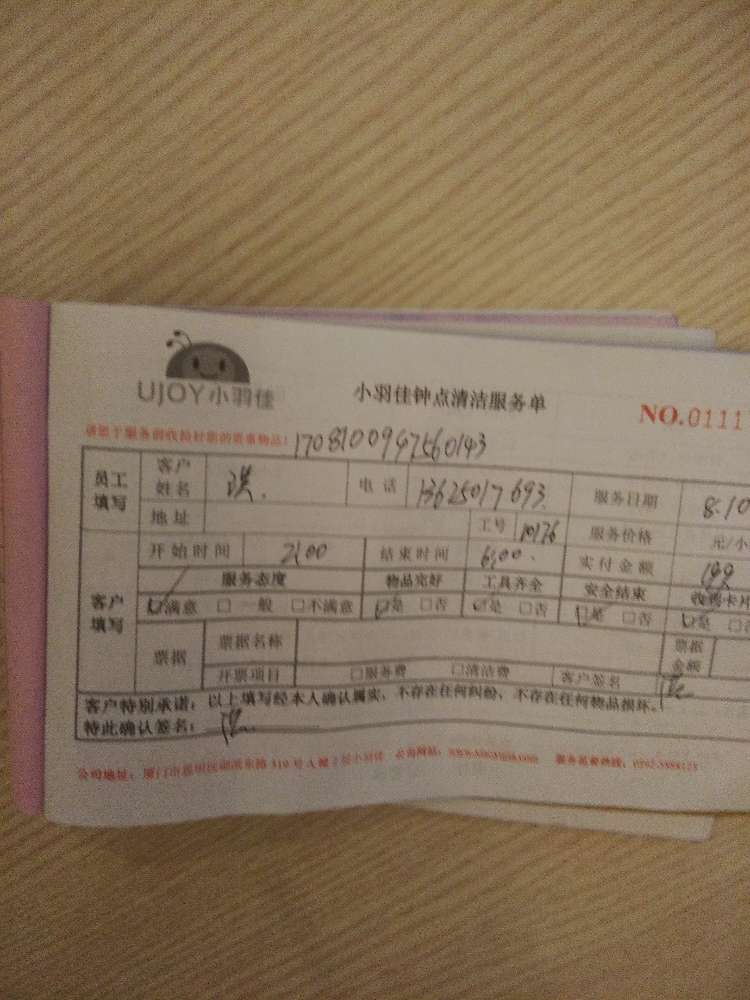 UJOY小羽佳
小羽佳钟点清洁服务单
NO.0111
请您于服务前收拾好您的贵重物品!
1708100947560143
员工填写 客户姓名 电话 13625017693 服务日期 8.10
地址 工号 10176 服务价格 元/小
客户填写 开始时间 2:00 结束时间 6:00 实付金额
服务态度 物品完好 工具齐全 安全结束 收费卡片
满意 □ 一般 □不满意 是 □否 是 □否 是 □否 是
票据 票据名称 票据金额
开票项目 □服务费 □清洁费 客户签名
客户特别承诺:以上填写经本人确认属实,不存在任何纠纷、不存在任何物品损坏。
特此确认签名:
公司地址:厦门市思明区 310号A幢 小羽佳 公司网站: 服务监督热线: